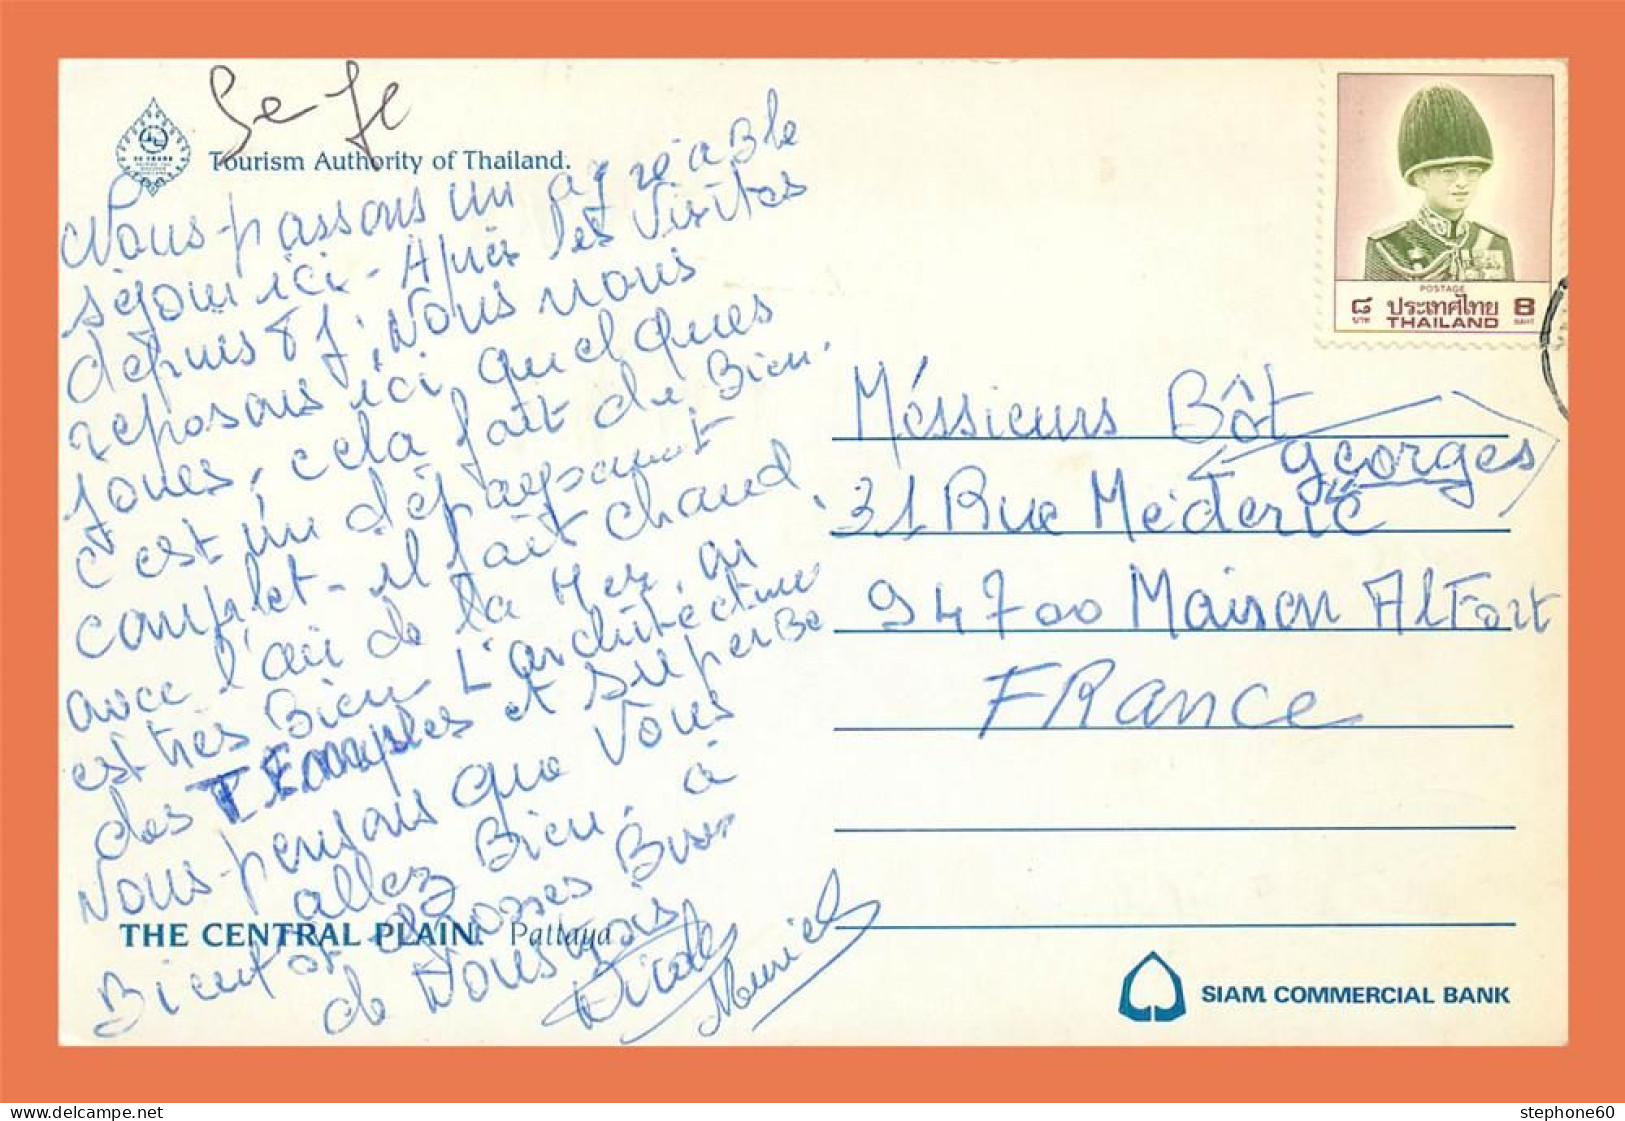 Tourism Authority of Thailand.
Nous passons un agréable
séjour ici - Après les visites
depuis 8 j, Nous nous
reposons ici quelques
joues, cela fait de Bien.
c'est un dépaysement
complet - il fait chaud
avec l'air de la Mer, on
est très Bien L'architecture
des TEmples et superBe
Nous pensons que Vous
allez Bien, à
Bientôt grosses Bises
de Nous trois
Nicole
Muriel
THE CENTRAL PLAIN. Pattaya
POSTAGE
๘ ประเทศไทย 8
บาท THAILAND BAHT
Méssieurs Bôt
georges
31 Rue Méderic
94700 Maison Alfort
FRance
SIAM COMMERCIAL BANK
stephone60